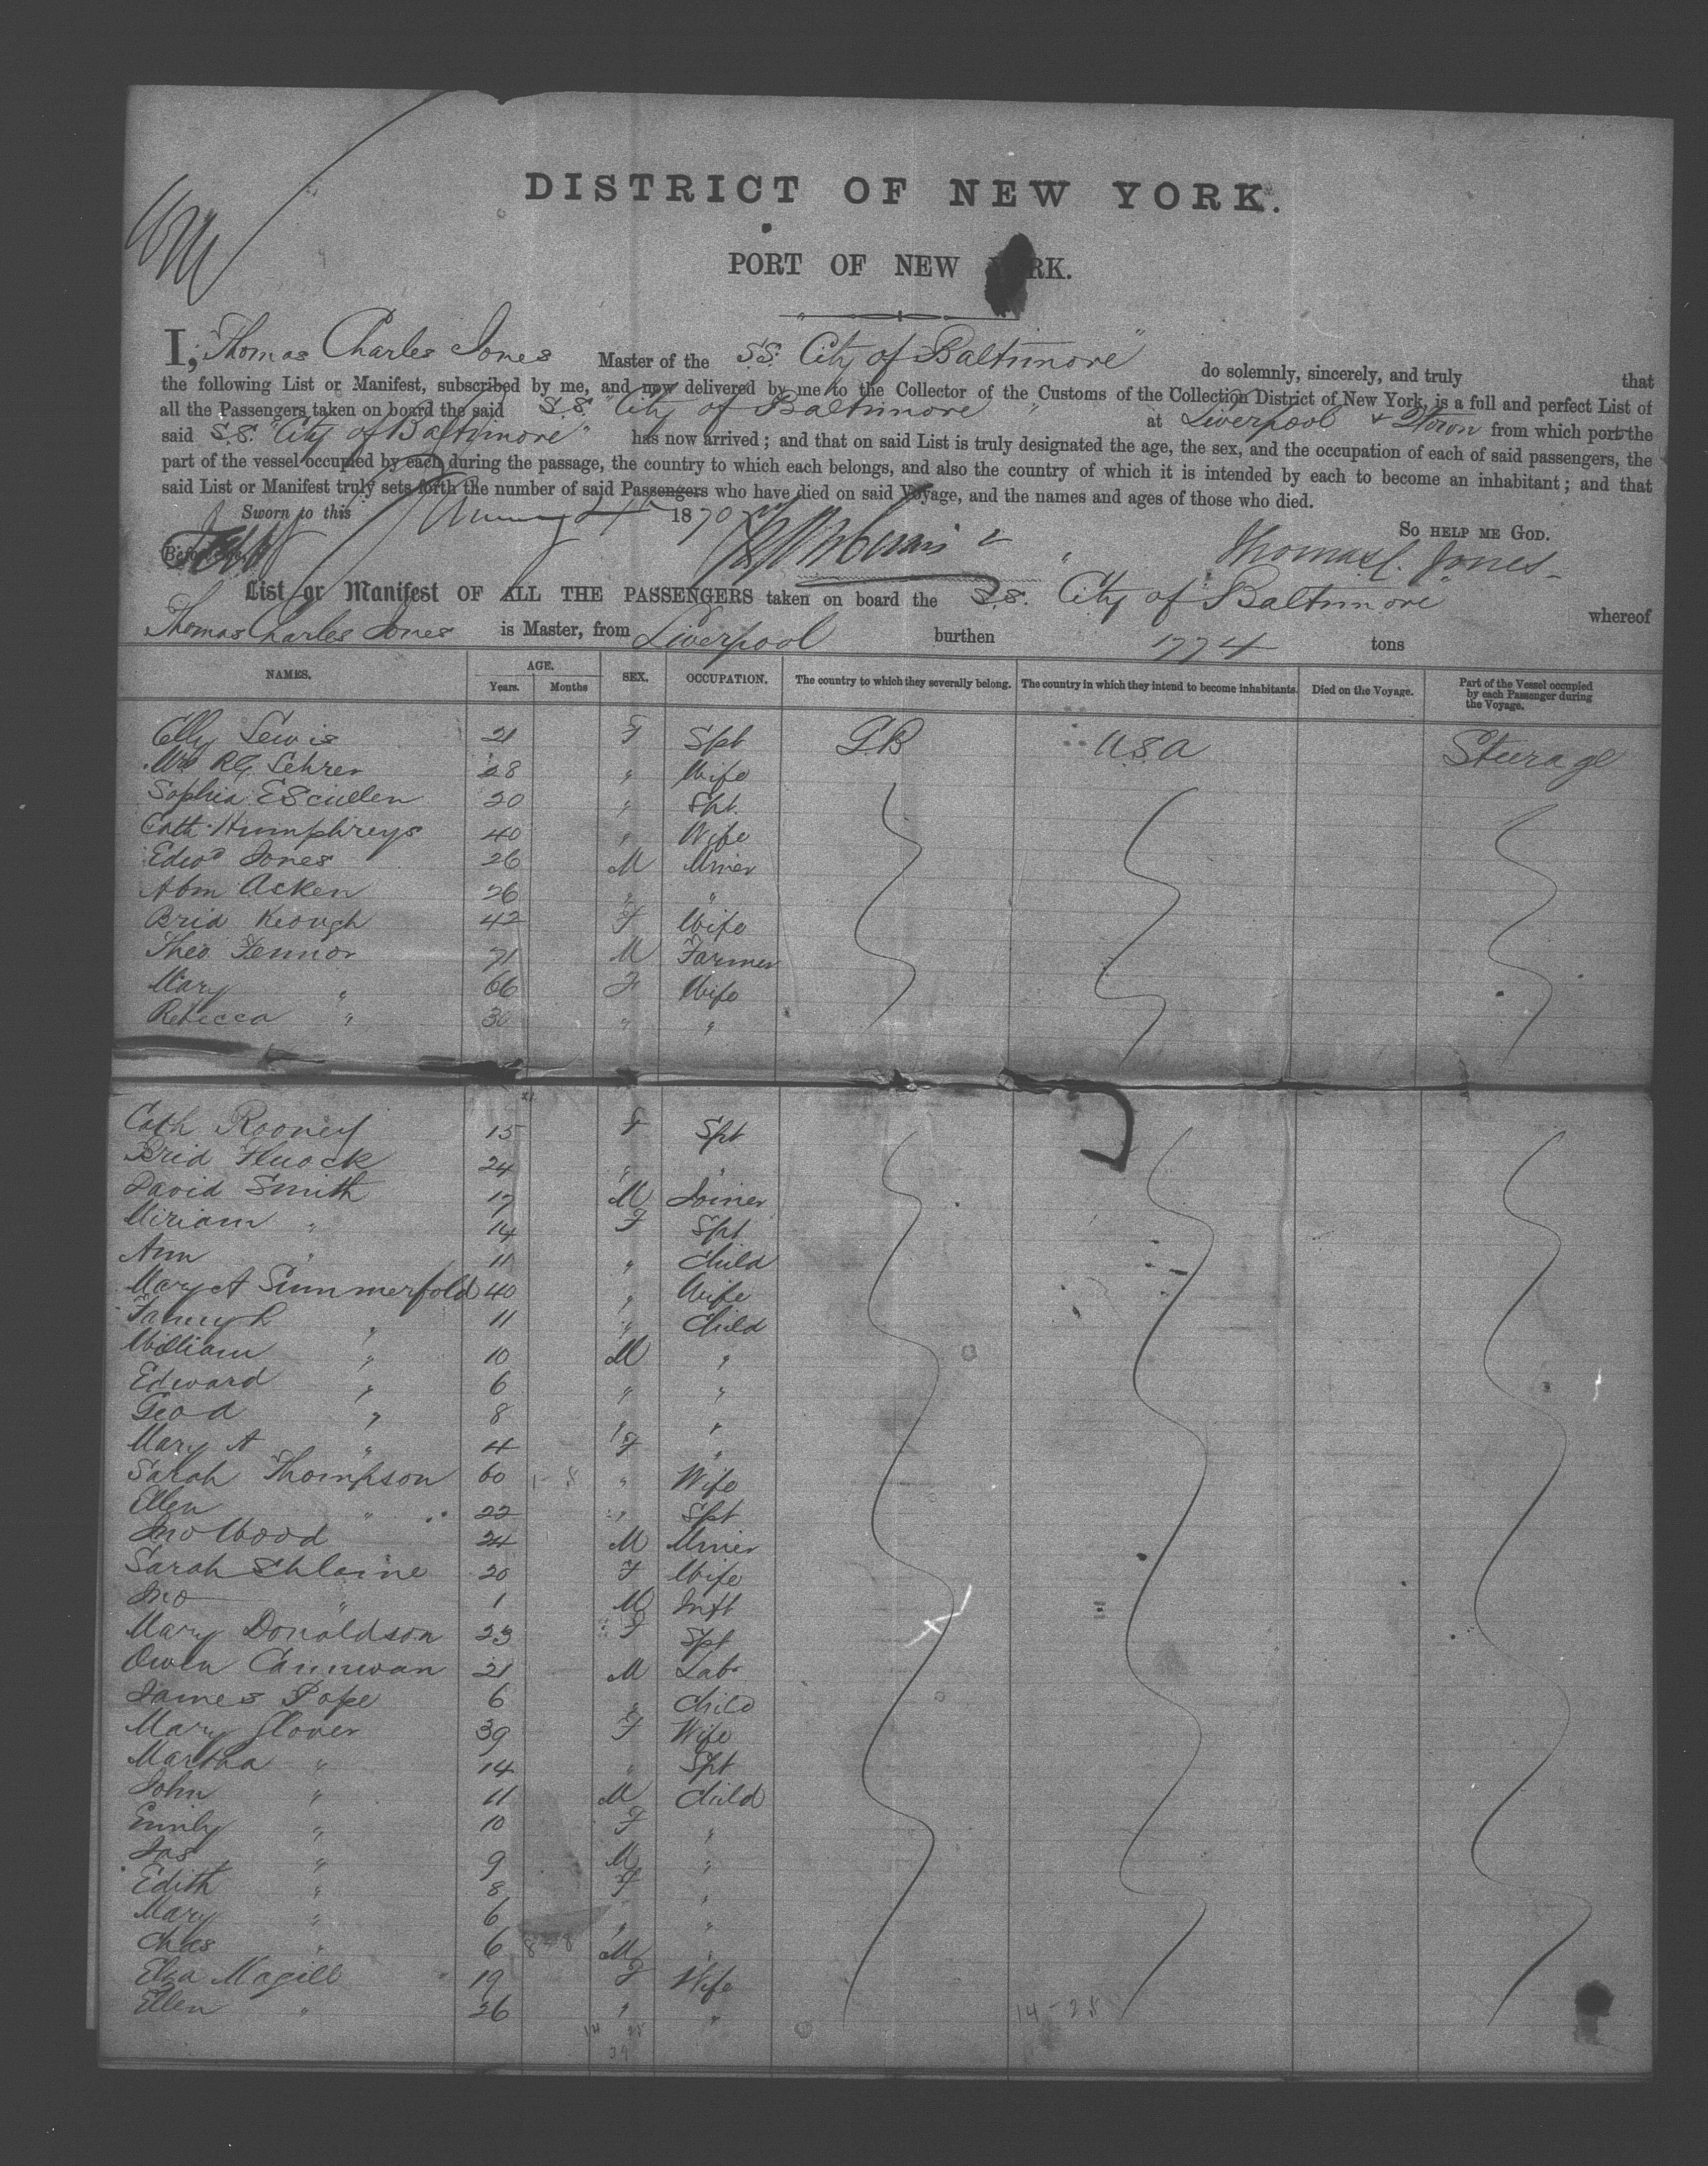 DISTRICT OF NEW YORK.
PORT OF NEW YORK.
I, Thomas Charles Jones Master of the S.S. City of Baltimore" do solemnly, sincerely, and truly that
the following List or Manifest, subscribed by me, and now delivered by me to the Collector of the Customs of the Collection District of New York, is a full and perfect List of
all the Passengers taken on board the said S.S. "City of Baltimore" at Liverpool & from which port the
said S.S. "City of Baltimore" has now arrived; and that on said List is truly designated the age, the sex, and the occupation of each of said passengers, the
part of the vessel occupied by each during the passage, the country to which each belongs, and also the country of which it is intended by each to become an inhabitant; and that
said List or Manifest truly sets forth the number of said Passengers who have died on said Voyage, and the names and ages of those who died.
Sworn to this 1870 SO HELP ME GOD.
Before me, Thomas C. Jones
List or Manifest OF ALL THE PASSENGERS taken on board the S.S. City of Baltimore" whereof
Thomas Charles Jones is Master, from Liverpool burthen 1774 tons
NAMES. AGE. Years. Months SEX. OCCUPATION. The country to which they severally belong. The country in which they intend to become inhabitants. Died on the Voyage. Part of the Vessel occupied by each Passenger during the Voyage.
Elly Lewis 21 F Spt GB U.S.A Steerage
Mrs RG Lehrer 28 " Wife
Sophia EScullen 20 " Spt.
Cath Humphreys 40 " Wife
Edwd Jones 26 M Miner
Abm Acken 26 " "
Brid Keough 42 F Wife
Theo Fennor 71 M Farmer
Mary " 66 F Wife
Rebecca " 30 " "
Cath Rooney 15 F Spt
Brid 24 " "
David Smith 17 M Joiner
Miriam " 14 F Spt
Ann " 11 " Child
Mary A Summerfold 40 " Wife
Fanny L " 11 " Child
William " 10 M "
Edward " 6 " "
Geo A " 8 " "
Mary A " 4 F "
Sarah Thompson 60 " Wife
Ellen " 22 " Spt
Jno Wood 24 M Miner
Sarah Schlaine 20 F Wife
Jno " 1 M Inft
Mary Donaldson 23 F Spt
Owen Cannwan 21 M Labr
James Pope 6 " Child
Mary Glover 39 F Wife
Martha " 14 " Spt
John " 11 M Child
Emily " 10 F "
Jas " 9 M "
Edith " 8 F "
Mary " 6 " "
Chas " 6 M "
Elza Magill 19 F Wife
Ellen " 26 " "
14 - 25